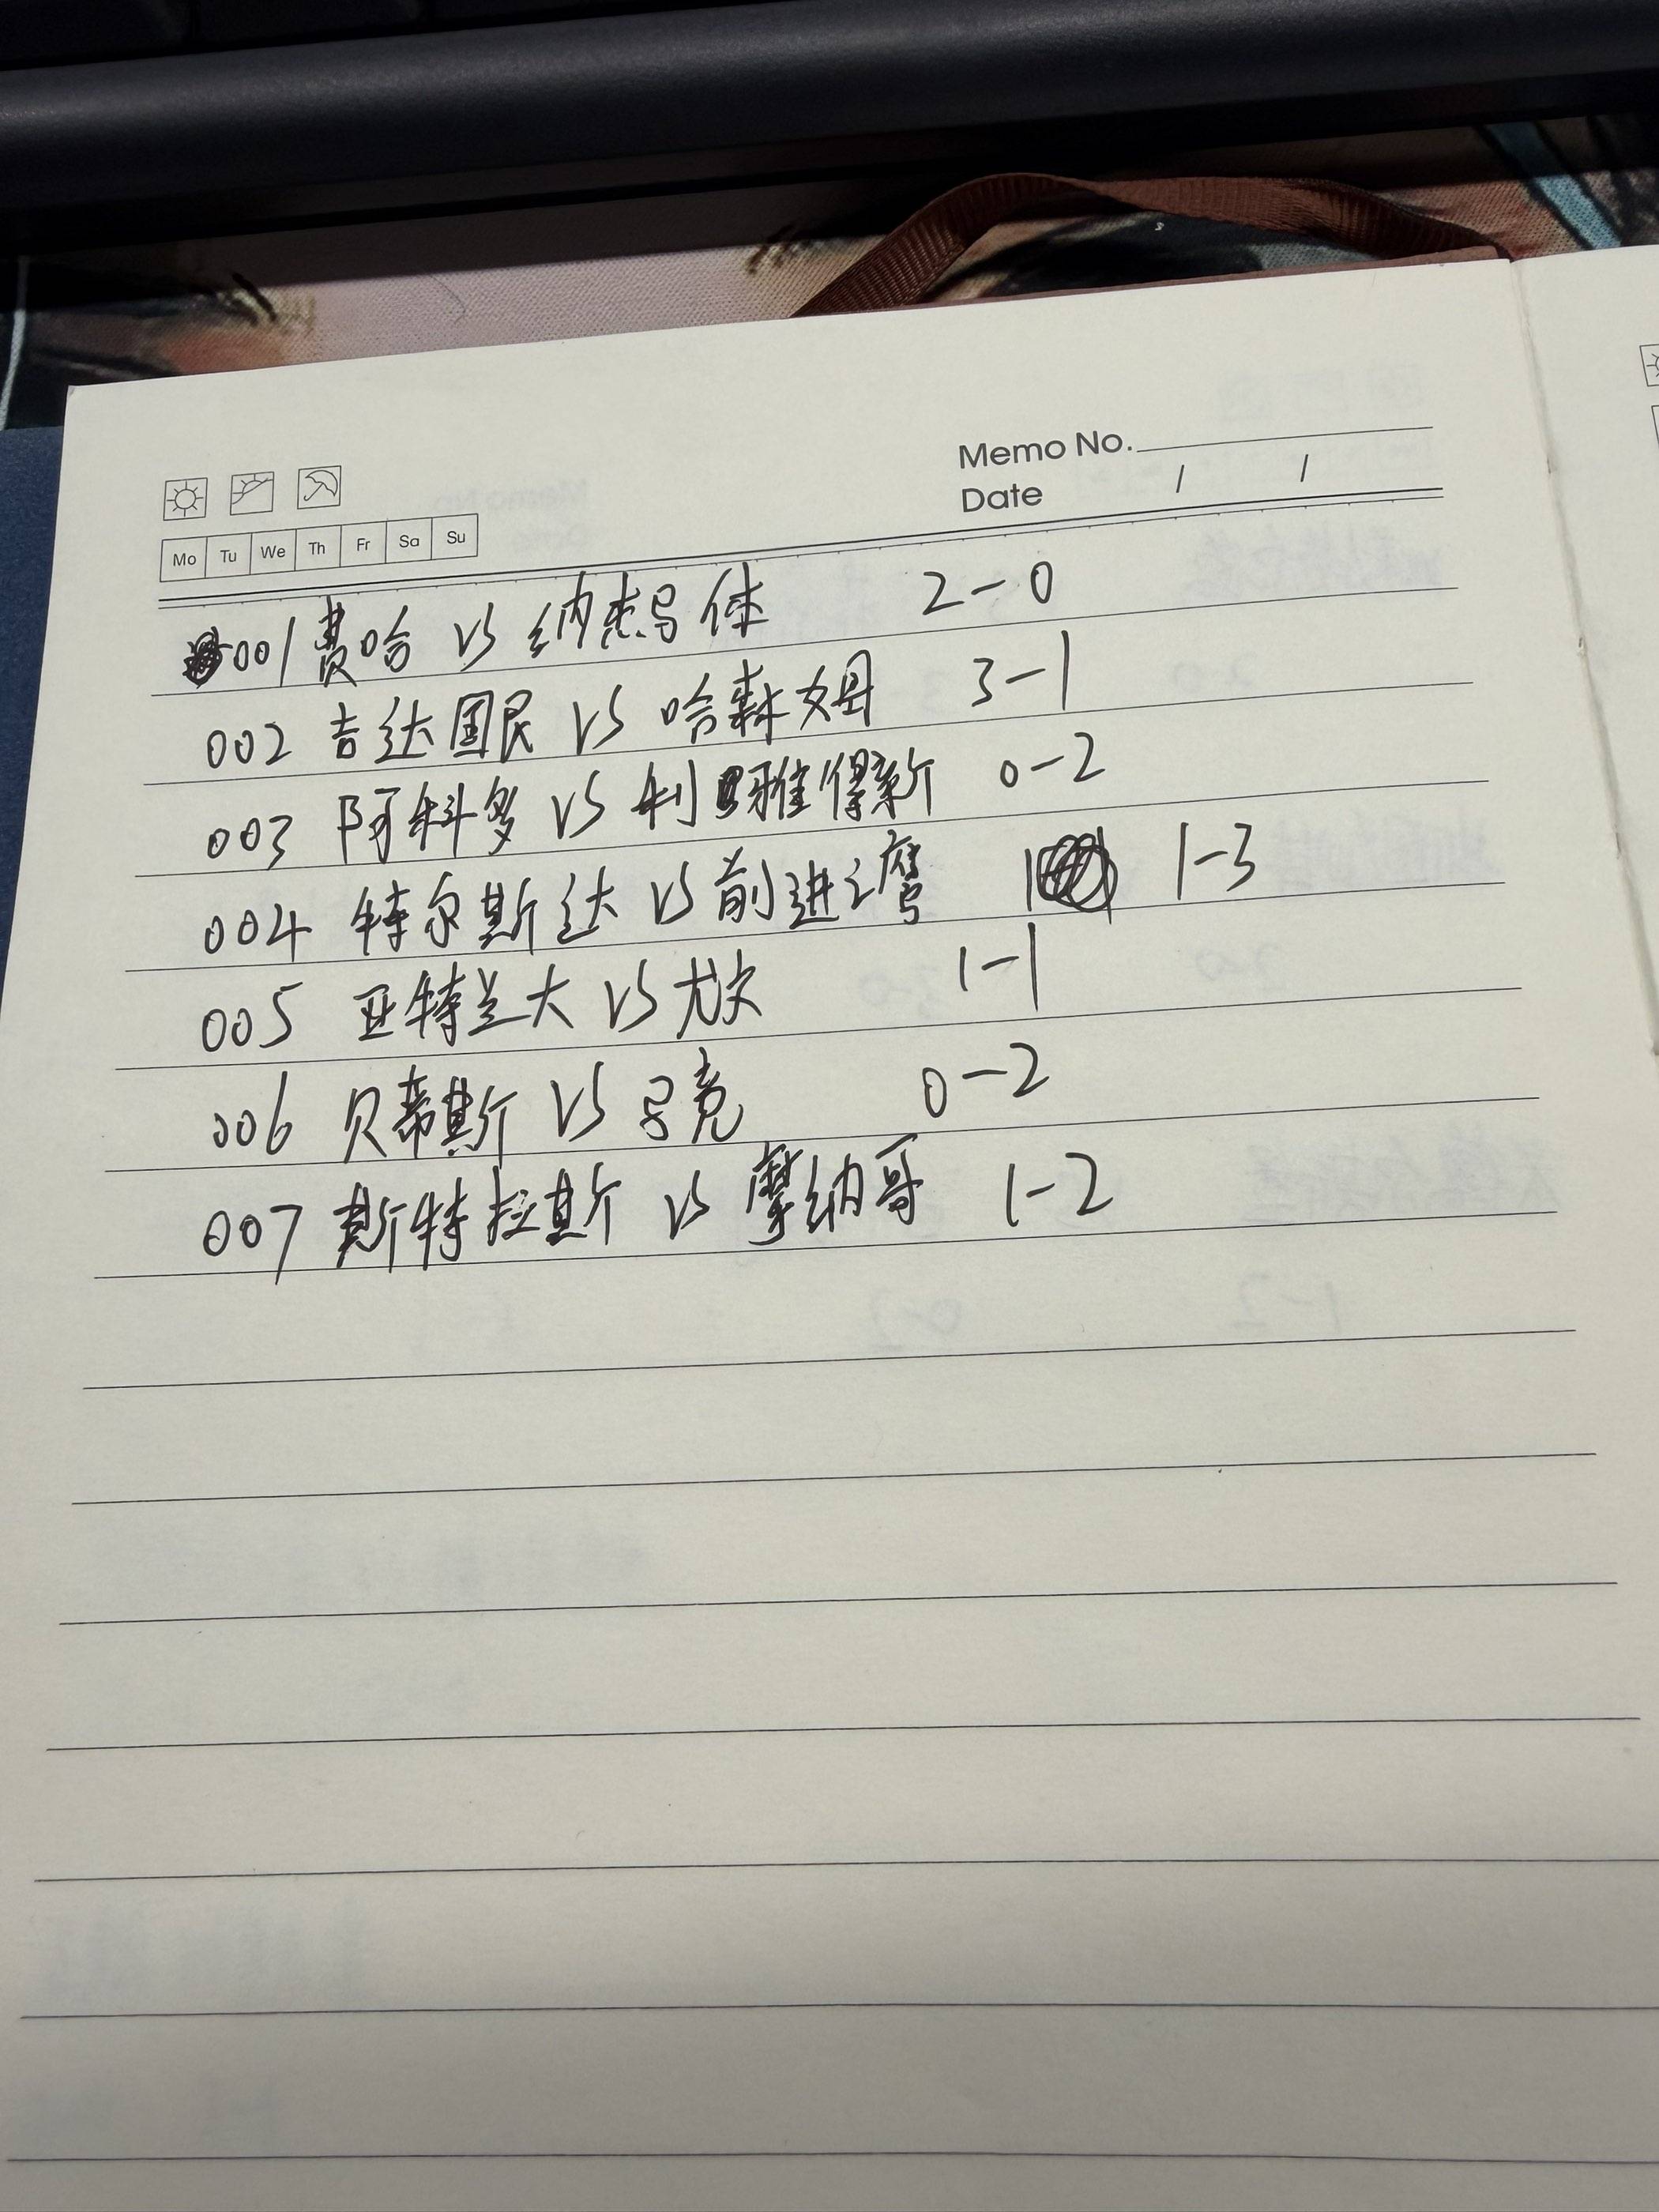 Memo No.
Date / /
Mo Tu We Th Fr Sa Su
001 费哈 VS 纳杰马体 2-0
002 吉达国民 VS 哈森姆 3-1
003 阿科多 VS 利雅得新 0-2
004 特尔斯达 VS 前进之鹰 1-3
005 亚特兰大 VS 尤文 1-1
006 贝蒂斯 VS 马竞 0-2
007 斯特拉斯 VS 摩纳哥 1-2